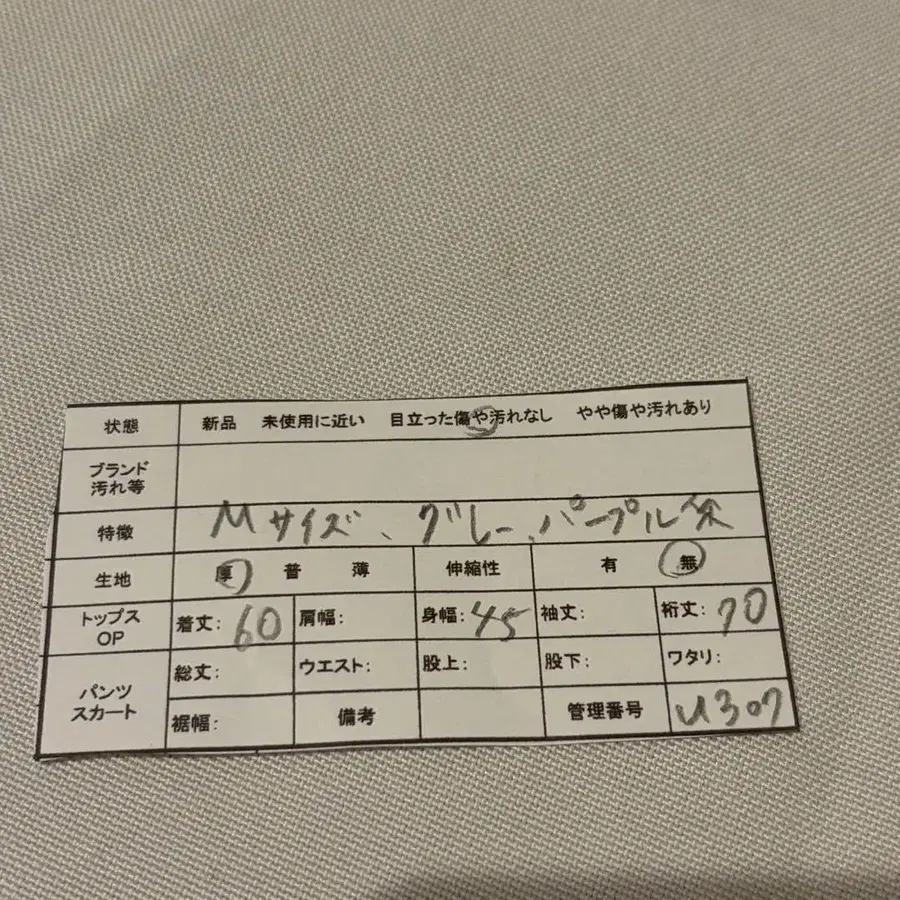 状態 新品 未使用に近い 目立った傷や汚れなし やや傷や汚れあり
ブランド
汚れ等
特徴 Mサイズ、グレー、パープル系
生地 厚 普 薄 伸縮性 有 無
トップス
OP
着丈: 60 肩幅: 身幅: 45 袖丈: 裄丈: 70
パンツ
スカート
総丈: ウエスト: 股上: 股下: ワタリ:
裾幅: 備考 管理番号 U307